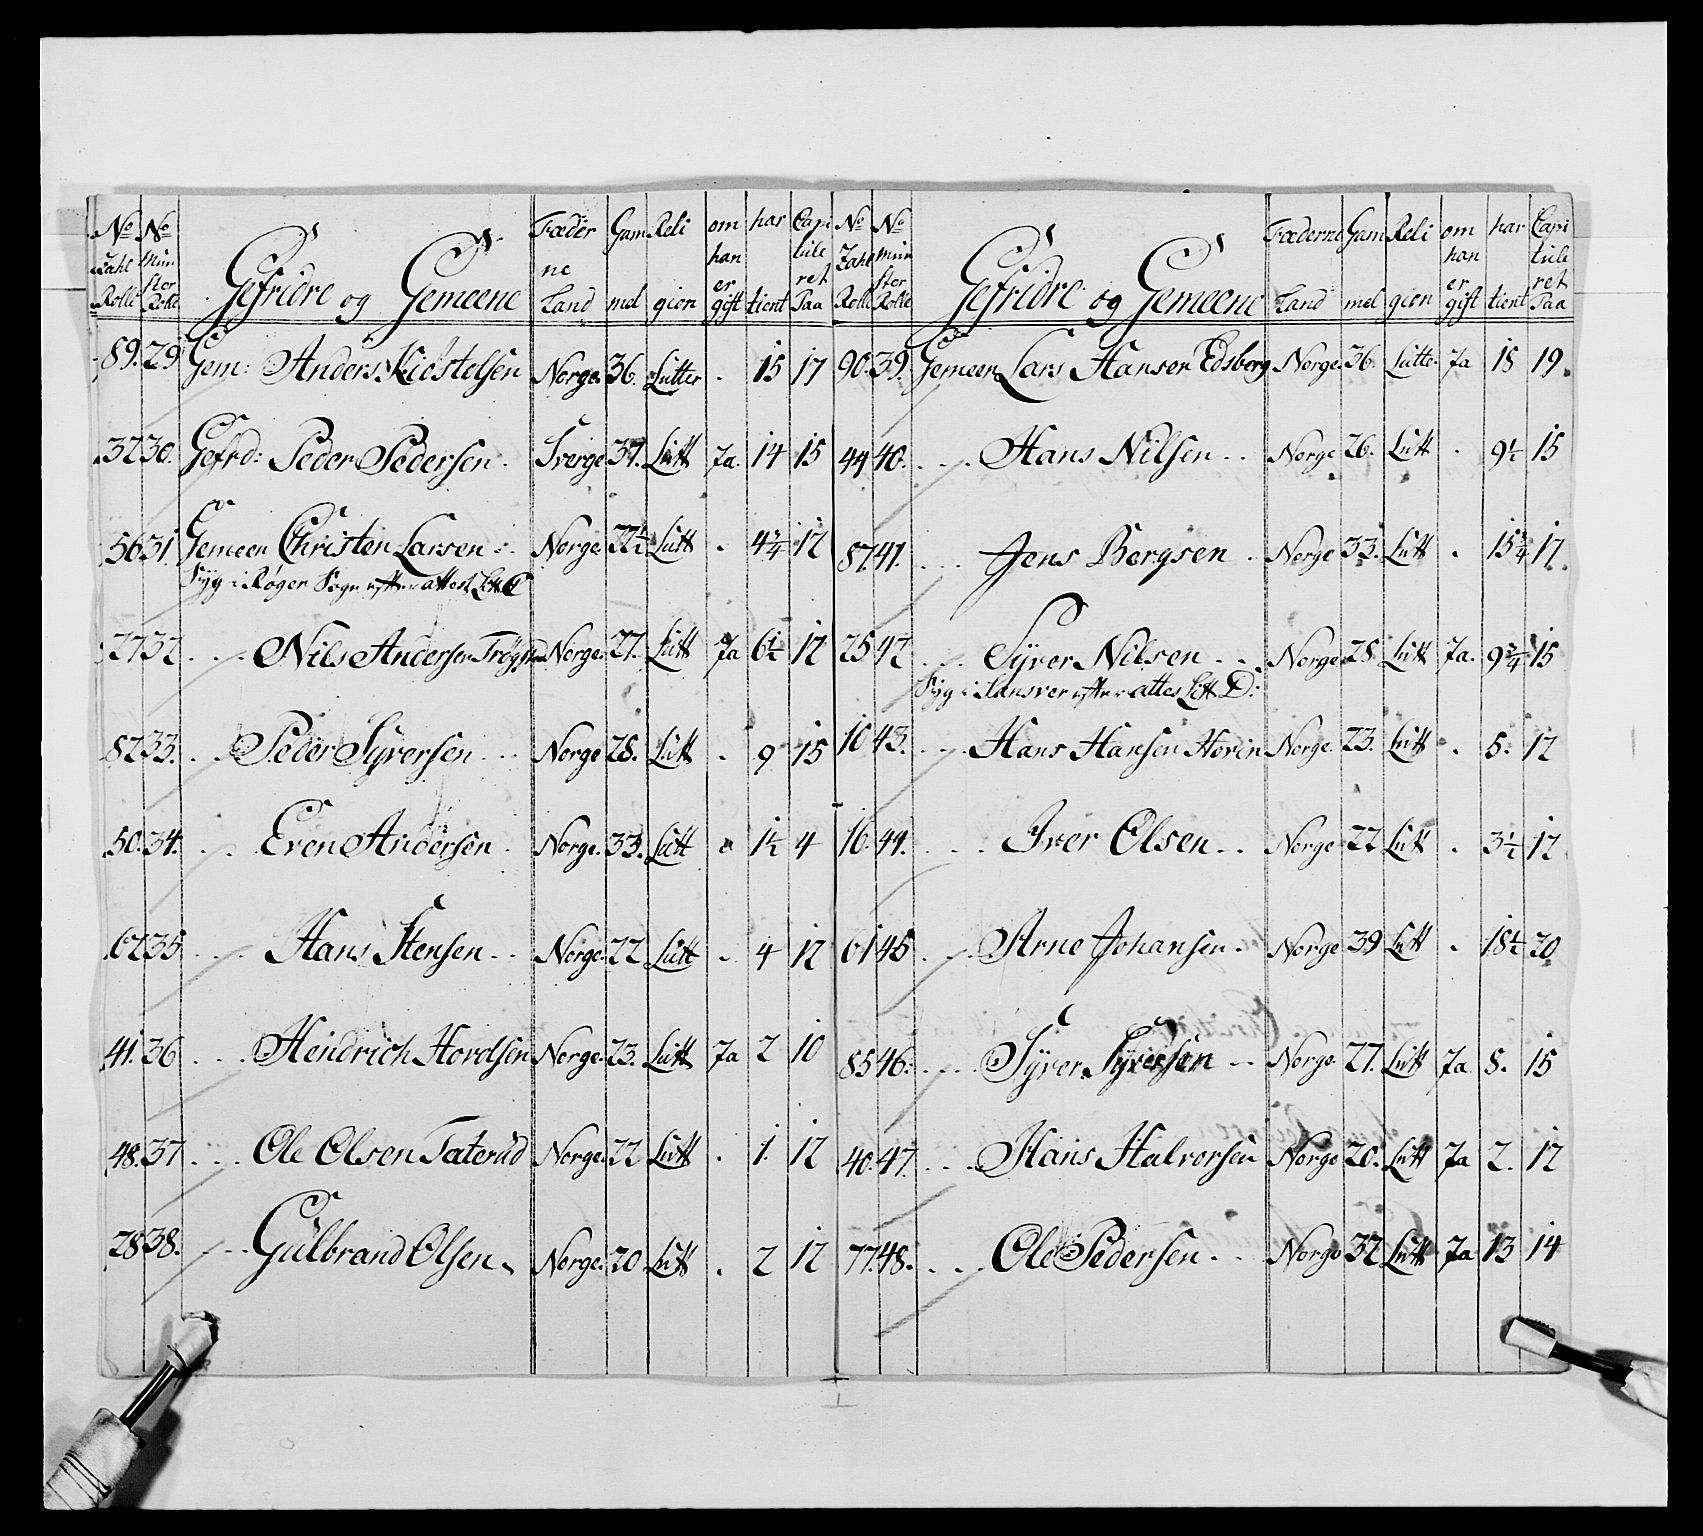 No Zahl Rolle | No Mün ster Rolle | Gefridre og Gemeene | Fæder ne Land | Gam mel | Reli gion | om han er gift | har tient | Capi tule ret Paa
89. | 29 | Gem: Anders Kiøstelsen | Norge. | 36. | Lutter | . | 15 | 17
32 | 30. | Gefrd: Peder Pedersen. | Sverge | 37. | Lutt | Ja. | 14 | 15
56 | 31. | Gemeen Christen Larsen | Norge. | 22½ | Lutt | . | 4¾ | 12
Syg i Røger Sogn efter attest Litt C
27 | 32 | Nils Andersen | Norge. | 27. | Lutt | Ja | 6½ | 12
82 | 33. | Peder Syversen | Norge | 28. | Lutt | . | 9 | 15
50. | 34. | Even Andersen | Norge. | 33. | Lutt | . | 1½ | 4
62 | 35 | Hans Stensen | Norge. | 22 | Lutt | . | 4 | 12
41. | 36 | Hendrich Hordsen | Norge. | 23. | Lutt | Ja | 2 | 10
48. | 37 | Ole Olsen Taterud | Norge. | 22 | Lutt | . | 1. | 12
28 | 38. | Gulbrand Olsen | Norge. | 20 | Lutt | . | 2 | 12
No Zahl Rolle | No Mün ster Rolle | Gefridre og Gemeene | Fæderne Land | Gam mel | Reli gion | om han er gift | har tient | Capi tule ret Paa
90. | 39. | Gemeen Lars Hansen Edsberg | Norge. | 36. | Lutte. | Ja | 18 | 19.
44 | 40. | Hans Nilsen | Norge | 26. | Lutt | . | 9½ | 15
87. | 41. | Jens Bergsen | Norge | 33. | Lutt | . | 15¾ | 17.
25 | 42 | Syver Nilsen | Norge | 28 | Lutt | Ja. | 9¾ | 15
Syg i efter attes Litt D:
10 | 43. | Hans Hansen Hovin | Norge. | 23. | Lutt | . | 5. | 12
16. | 44. | Iver Olsen | Norge | 22 | Lutt | . | 3½ | 12
61 | 45 | Arne Johansen | Norge | 39 | Lutt | . | 18½ | 20
85 | 46. | Syver Syversen | Norge | 27. | Lutt | Ja | 8. | 15
40. | 47. | Hans Halvorsen | Norge | 20. | Lutt | Ja | 2. | 12
77. | 48. | Ole Pedersen | Norge | 32 | Lutt | Ja | 13 | 14